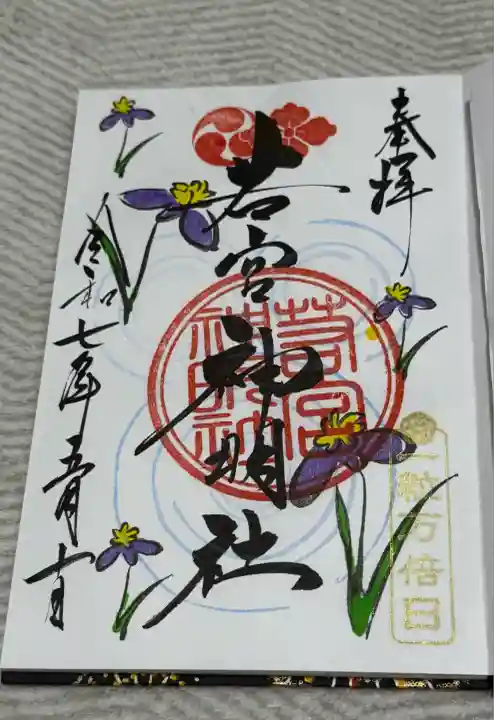 奉拝
若宮神明社
若宮神明社
一粒万倍日
令和七年五月十日